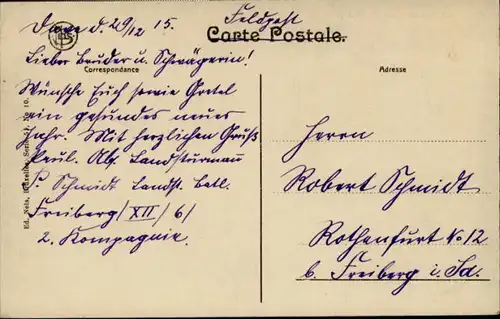 d. 29/12 15.
Feldpost
Carte Postale.
Lieber Bruder u. Schwägerin!
Correspondance
Adresse
Wünsche Euch sowie Gretel
ein gesundes neues
Jahr. Mit herzlichen Gruß
Paul. Abs. Landsturmann
P. Schmidt Landst. Batl.
Freiberg/XII/6/
2. Kompagnie.
Herrn
Robert Schmidt
Rothenfurt No 12
b. Freiberg i. Sa.
Ed. Nels, Bruxelles,